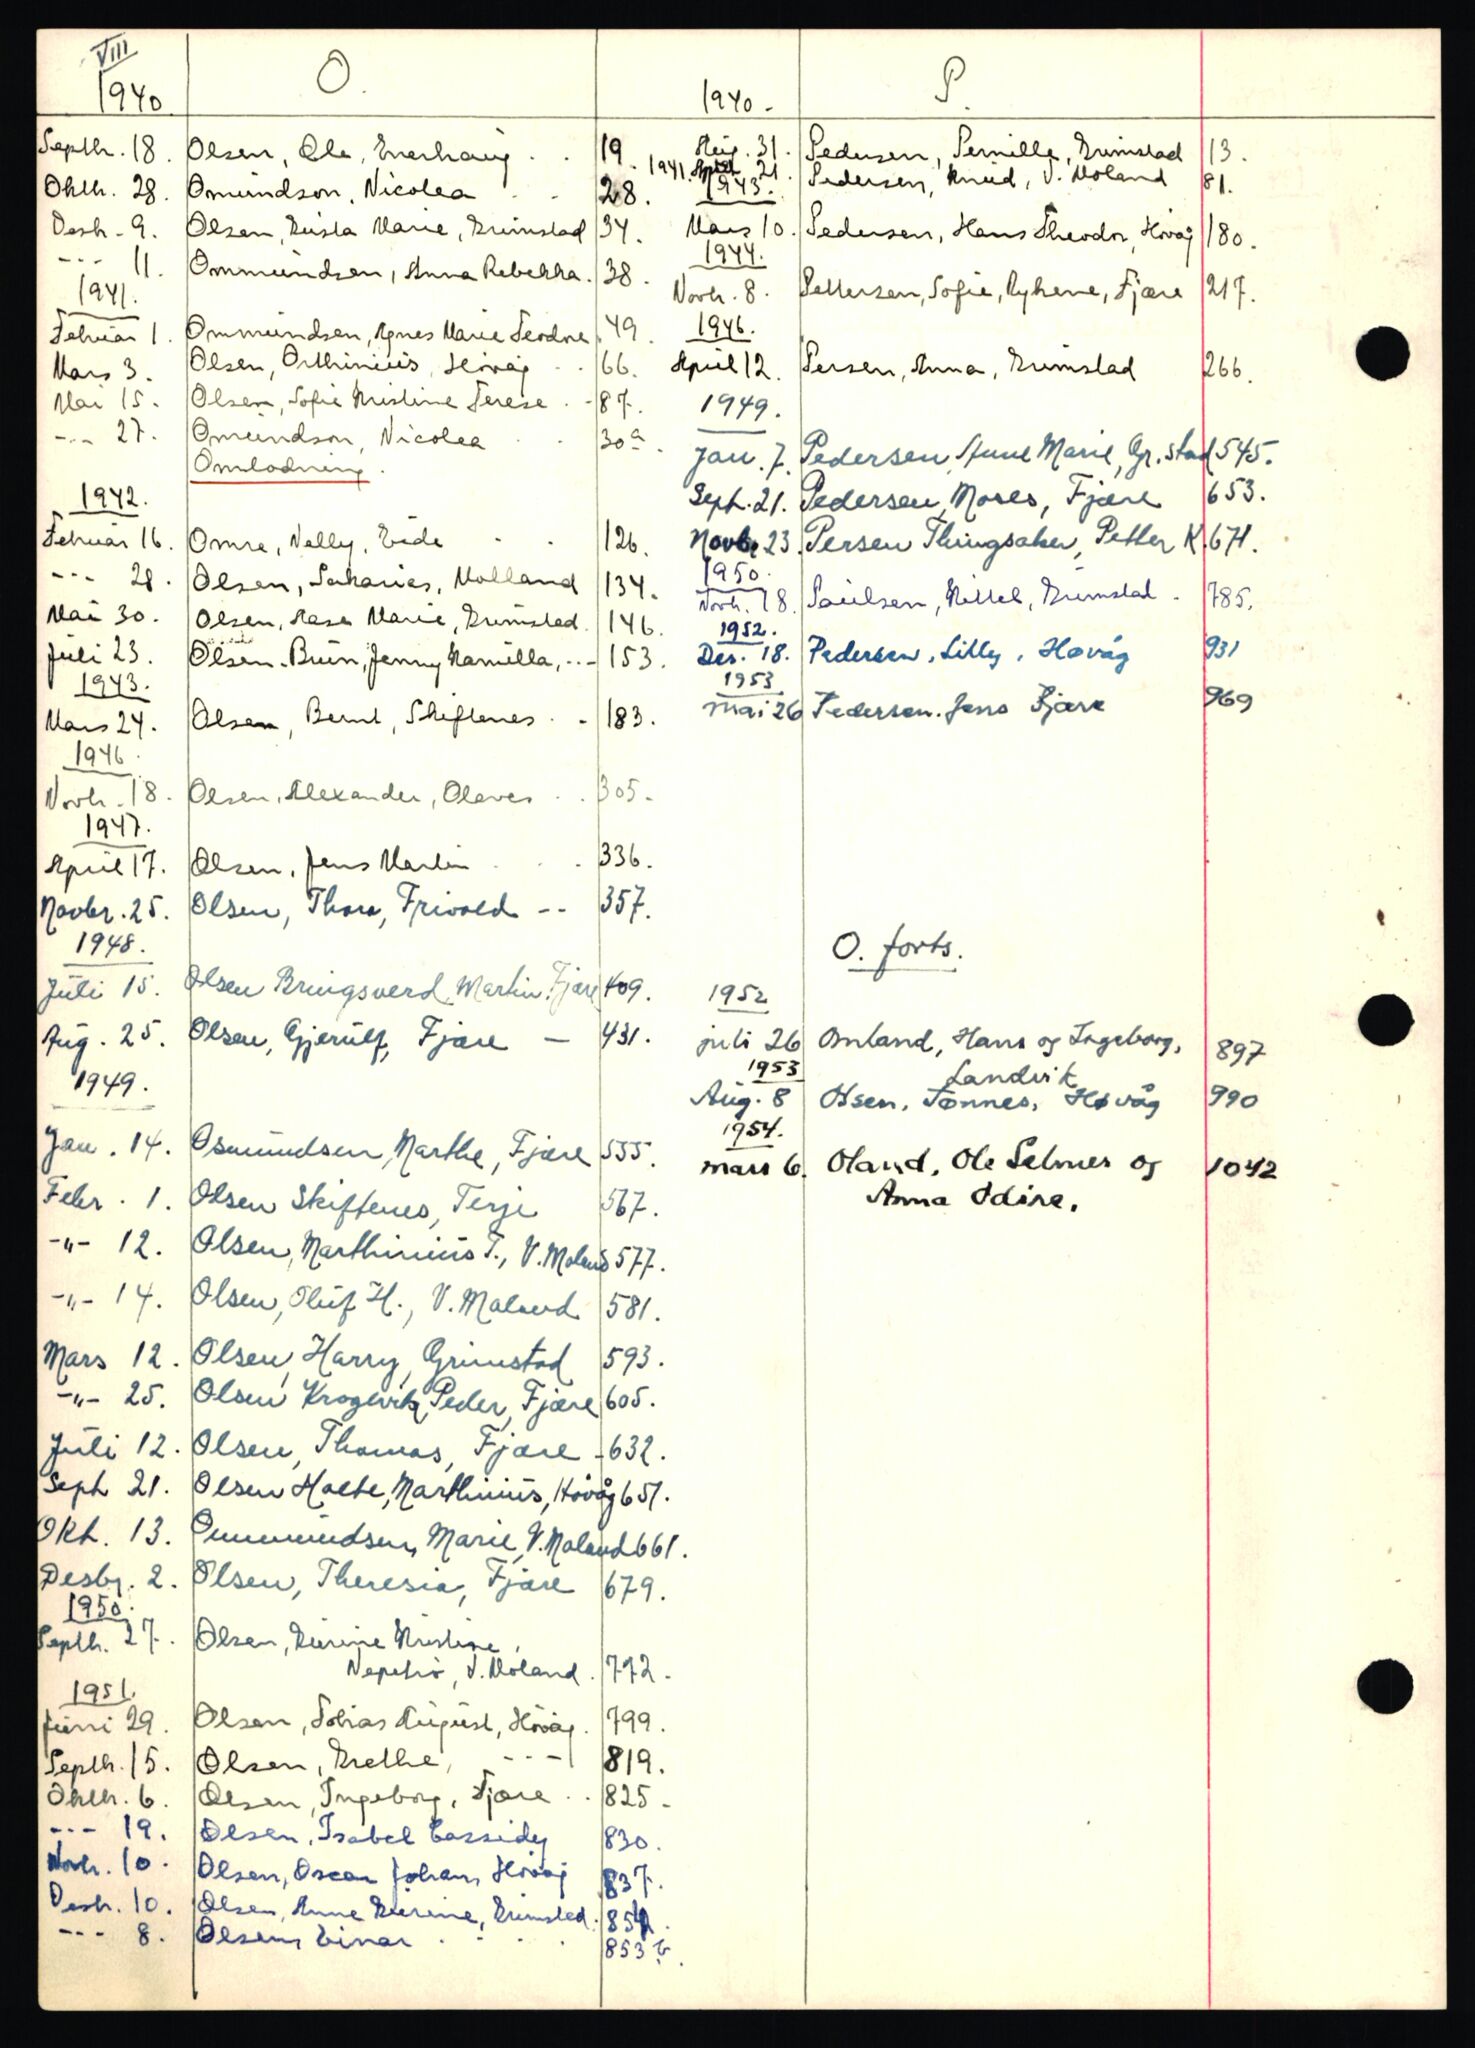 VIII
1940
O.
Septb. 18. Olsen, Ole, Enerhaug . . 19
Oktb. 28. Omundson, Nicolea . . 28.
Desb. 9. Olsen, Marie, Grimstad 34.
--- 11. Ommundsen, Anna Rebekka. 38.
1941.
Februar 1. Ommundsen, Agnes Marie Teodore 49.
Mars 3. Olsen, Orthinius, Høvåg . . 66.
Mai 15. Olsen, Sofie Kristine Terese . - 87.
--- 27. Omundson, Nicolea . . 30a
Omlodning.
1942.
Februar 16. Omre, Nelly, Eide . . 126.
--- 28. Olsen, Sakarias, Molland 134.
Mai 30. Olsen, Aase Marie, Grimstad. 146.
Juli 23. Olsen-Brun, Jenny Kamilla, .. - 153.
1943.
Mars 24. Olsen, Bernt, Skiftenes . . 183.
1946.
Novb. 18. Olsen, Alexander, Olaves . . 305.
1947.
April 17. Olsen, Jens Martin . . . 336.
Novbr. 25. Olsen, Thora, Frivold -- 357.
1948.
Juli 15. Olsen Bringsverd, Martin, Fjære 409.
Aug. 25. Olsen, Gjerulf, Fjære — 431.
1949.
Jan. 14. Osmundsen, Marthe, Fjære 555.
Febr. 1. Olsen Skiftenes, Terje 567.
-"- 12. Olsen, Marthinius T., V. Moland 577.
-"- 14. Olsen, Oluf H., V. Moland 581.
Mars 12. Olsen, Harry, Grimstad 593.
-"- 25. Olsen Krogevik, Peder, Fjære 605.
Juli 12. Olsen, Thomas, Fjære - 632.
Sept. 21. Olsen Holte, Marthinius, Høvåg 651.
Okt. 13. Ommundsen, Marie, V. Moland 661.
Desbr. 2. Olsen, Theresia, Fjære 679.
1950.
Septb. 27. Olsen, Gurine Kristine,
V. Moland. 772.
1951.
Juni 29. Olsen, Tobias August, Høvåg. 799.
Septb. 15. Olsen, Grethe, --- 819.
Oktb. 6. Olsen, Ingeborg, Fjære . . 825.
--- 19. Olsen, Isabel Cassidy 830.
Novb. 10. Olsen, Oscar Johan, Høvåg 837.
Desb. 10. Olsen, Anne Gurine, Grimstad. 854.
--- 8. Olsen, Einar . . . . 853 b.
1940.
P.
Aug. 31. Pedersen, Pernille, Grimstad 13.
1941. April 21. Pedersen, Knud, V. Moland 81.
1943.
Mars 10. Pedersen, Hans Theodor, Høvåg 180.
1944.
Novb. 8. Pettersen, Sofie, Rykene, Fjære 217.
1946.
April 12. Persen, Anna, Grimstad 266.
1949.
Jan. 7. Pedersen, Anne Marie, Gr.stad 545.
Sept. 21. Pedersen, Moses, Fjære 653.
Novbr 23. Persen Thingsaker, Petter K. 671.
1950.
Novb. 18. Paulsen, Kittel, Grimstad . 785.
1952.
Des. 18. Pedersen, Lilly, Høvåg 931
1953
mai 26 Pedersen. Jens Fjære 969
O. forts.
1952
juli 26 Omland, Hans og Ingeborg, 897
Landvik
1953
Aug. 8 Olsen, Tønnes, Høvåg 990
1954.
mars 6. Oland, Ole Selmer og 1042
Anna Odine.